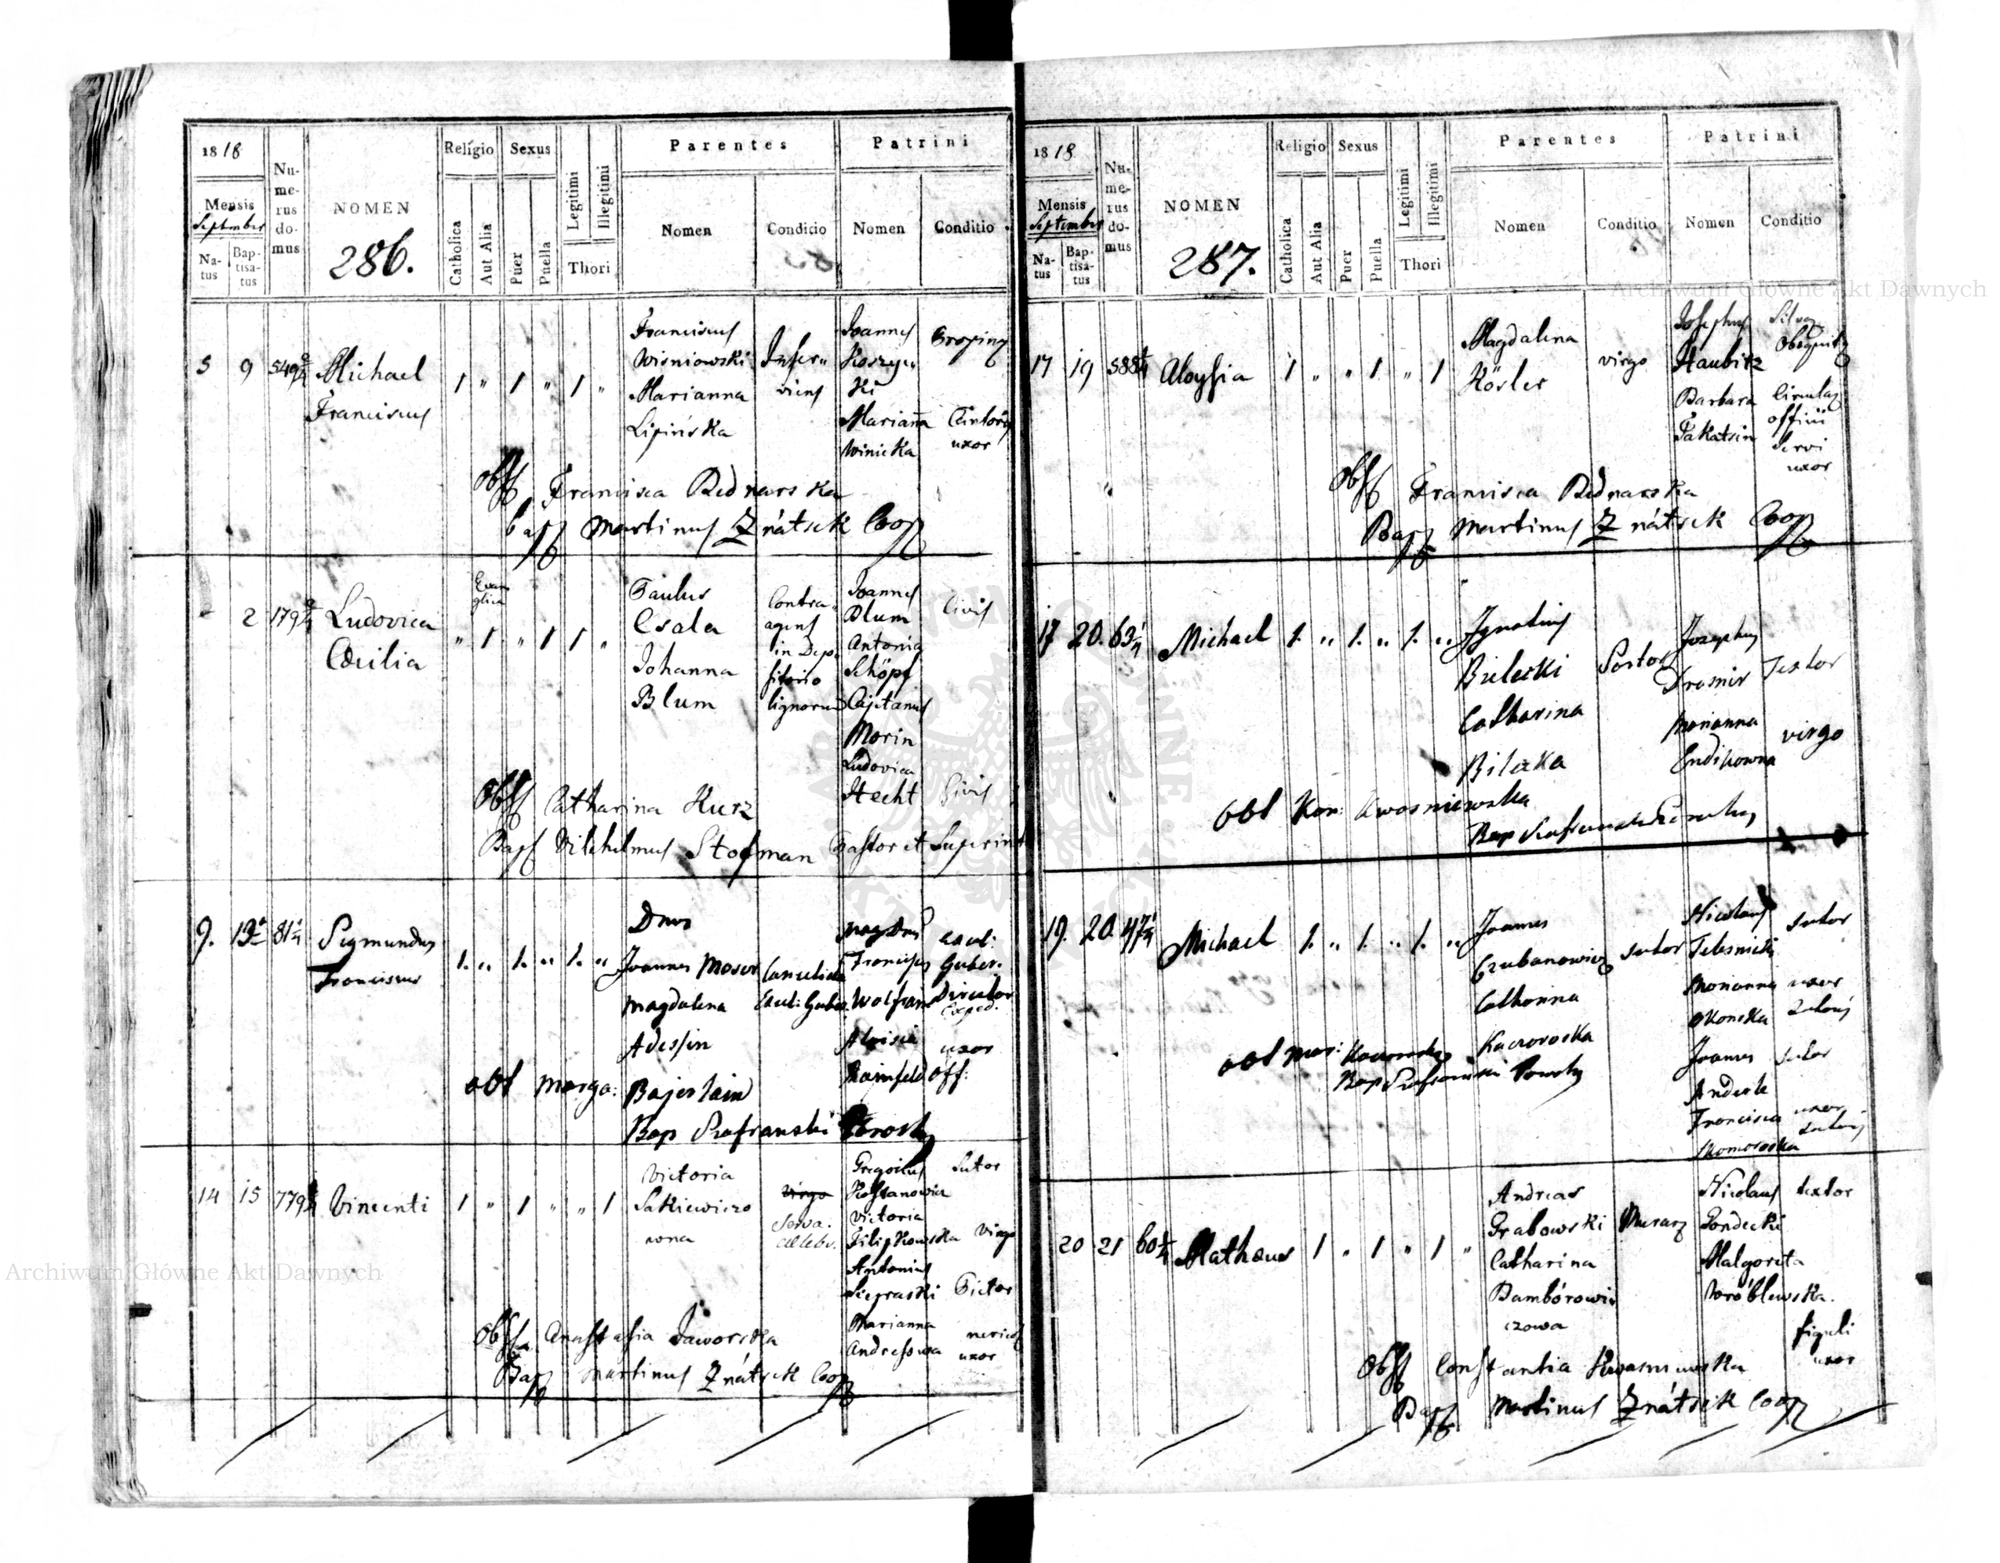 1818
Mensis
September
Na-
tus
Bap-
tisa-
tus
Nu-
me-
rus
do-
mus
NOMEN
286.
Religio
Catholica
Aut Alia
Sexus
Puer
Puella
Legitimi
Illegitimi
Thori
Parentes
Nomen
Condicio
Patrini
Nomen
Conditio
5 9 549
Michael
Franciscus
1 " 1 " 1 "
Franciscus
Wisniowski
Marianna
Lipińska
Inser-
viens
Joannes
Koszyc-
ki
Marianna
Winicka
uxor
Obst Francisca Bednarska
Bap Martinus Znátsek Coop
2 179
Ludovica
Cæcilia
Evan
gelica
" 1 " 1 1 "
Paulus
Csala
Johanna
Blum
Contra-
agens
in Dep-
sitorio
lignorum
Joannes
Blum
Antonia
Schöpf
Cajetanus
Morin
Ludovica
Hecht
Civis
Civis
Obst Catharina Kurz
Bap Vilhelmus Stofman Pastor et Superint
9. 13 81
Sigmundus
Franciscus
1. " 1. " 1. "
Dnus
Joannes Moser
Magdalena
Adessin
Cancelista
Magn Dnus
Franciscus
Wolfram
Aloisia
Rainfeld
Guber.
Director
Exped.
uxor
Off:
obst Marga: Bajerlain
Bap Szafranski
14 15 779
Vincenti
1 " 1 " " 1
Victoria
Satkiewiczo
wna
virgo
Serva.
cæleb.
Gregorius
Kostanowicz
Victoria
Filipkowska
Antonius
Siepraski
Marianna
Andresowa
Sutor
Virgo
Pictor
uxor
Obst Anastasia Jaworska
Bap Martinus Znátsek Coop
1818.
Mensis
September
Na-
tus
Bap-
tisa-
tus
Nu-
me-
rus
do-
mus
NOMEN
287.
Religio
Catholica
Aut Alia
Sexus
Puer
Puella
Legitimi
Illegitimi
Thori
Parentes
Nomen
Conditio
Patrini
Nomen
Conditio
17 19 588
Aloysia
1 " " 1 " 1
Magdalena
Kösler
virgo
Josephus
Haubitz
Barbara
Takatsin
offici
Servi
uxor
Obst Francisca Bednarska
Bap Martinus Znátsek Coop
17 20. 63
Michael
1. " 1. " 1. "
Ignatius
Bielecki
Catharina
Bilecka
Josephus
Marianna
Textor
virgo
obst Kon: Kwosniewska
19. 20. 47
Michael
1. " 1. " 1. "
Joannes
Czubanowicz
Catharina
Kaczoroska
Sutor
Nicolaus
Telesnicki
Marianna
Okonska
Joannes
Anderle
Francisca
Komoroska
Sutor
uxor
Sutoris
Sutor
uxor
Sutoris
obst Mar:
20 21 60
Mathæus
1 " 1 " 1 "
Andreas
Grabowski
Catharina
Dambórowi
czowa
Murarz
Nicolaus
Gondecki
Malgoreta
Wróblewska.
textor
figuli
uxor
Obst Constantia Kwasniewska
Bap Martinus Znátsek Coop
Archiwum Główne Akt Dawnych
Archiwum Główne Akt Dawnych